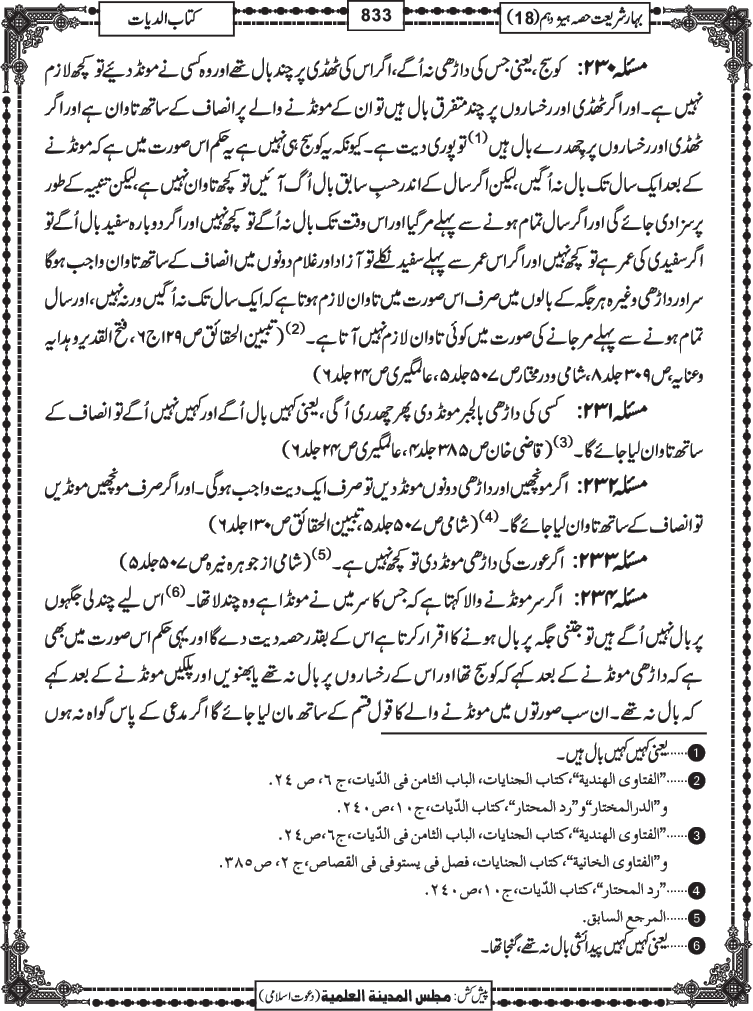 بہارِ شریعت حصہ ہیژدہم (18)
833
کتاب الدیات
مسئلہ ۲۳۰: کوسج، یعنی جس کی داڑھی نہ اُگے، اگر اس کی ٹھڈی پر چند بال تھے اور وہ کسی نے مونڈ دئیے تو کچھ لازم
نہیں ہے۔ اور اگر ٹھڈی اور رخساروں پر چند متفرق بال ہیں تو ان کے مونڈنے والے پر انصاف کے ساتھ تاوان ہے اور اگر
ٹھڈی اور رخساروں پر چھدرے بال ہیں (1) تو پوری دیت ہے۔ کیونکہ یہ کوسج ہی نہیں ہے یہ حکم اس صورت میں ہے کہ مونڈنے
کے بعد ایک سال تک بال نہ اُگیں، لیکن اگر سال کے اندر حسبِ سابق بال اُگ آئیں تو کچھ تاوان نہیں ہے، لیکن تنبیہ کے طور
پر سزا دی جائے گی اور اگر سال تمام ہونے سے پہلے مر گیا اور اس وقت تک بال نہ اُگے تو کچھ نہیں اور اگر دوبارہ سفید بال اُگے تو
اگر سفیدی کی عمر ہے تو کچھ نہیں اور اگر اس عمر سے پہلے سفید نکلے تو آزاد اور غلام دونوں میں انصاف کے ساتھ تاوان واجب ہوگا
سر اور داڑھی وغیرہ ہر جگہ کے بالوں میں صرف اس صورت میں تاوان لازم ہوتا ہے کہ ایک سال تک نہ اُگیں ورنہ نہیں، اور سال
تمام ہونے سے پہلے مر جانے کی صورت میں کوئی تاوان لازم نہیں آتا ہے۔ (2) (تبیین الحقائق ص ۱۲۹ ج ۶، فتح القدیر و ہدایہ
و عنایہ، ص ۳۰۹ جلد ۸، شامی و درمختار ص ۵۰۷ جلد ۵، عالمگیری ص ۲۴ جلد ۶)
مسئلہ ۲۳۱: کسی کی داڑھی بالجبر مونڈ دی پھر چھدری اُگی، یعنی کہیں بال اُگے اور کہیں نہیں اُگے تو انصاف کے
ساتھ تاوان لیا جائے گا۔ (3) (قاضی خان ص ۳۸۵ جلد ۴، عالمگیری ص ۲۴ جلد ۶)
مسئلہ ۲۳۲: اگر مونچھیں اور داڑھی دونوں مونڈ دیں تو صرف ایک دیت واجب ہوگی۔ اور اگر صرف مونچھیں مونڈیں
تو انصاف کے ساتھ تاوان لیا جائے گا۔ (4) (شامی ص ۵۰۷ جلد ۵، تبیین الحقائق ص ۱۳۰ جلد ۶)
مسئلہ ۲۳۳: اگر عورت کی داڑھی مونڈ دی تو کچھ نہیں ہے۔ (5) (شامی از جوہرہ نیرہ ص ۵۰۷ جلد ۵)
مسئلہ ۲۳۴: اگر سر مونڈنے والا کہتا ہے کہ جس کا سر میں نے مونڈا ہے وہ چندلا تھا۔ (6) اس لیے چندلی جگہوں
پر بال نہیں اُگے ہیں تو جتنی جگہ پر بال ہونے کا اقرار کرتا ہے اس کے بقدر حصہ دیت دے گا اور یہی حکم اس صورت میں بھی
ہے کہ داڑھی مونڈنے کے بعد کہے کہ کوسج تھا اور اس کے رخساروں پر بال نہ تھے یا بھنویں اور پلکیں مونڈنے کے بعد کہے
کہ بال نہ تھے۔ ان سب صورتوں میں مونڈنے والے کا قول قسم کے ساتھ مان لیا جائے گا اگر مدعی کے پاس گواہ نہ ہوں
1 ......یعنی کہیں کہیں بال ہیں۔
2 ......"الفتاوی الھندیة"،کتاب الجنایات، الباب الثامن فی الدّیات،ج ٦، ص ٢٤.
و"الدرالمختار"و"رد المحتار"،کتاب الدّیات،ج١٠،ص٢٤٠.
3 ......"الفتاوی الھندیة"،کتاب الجنایات، الباب الثامن فی الدّیات،ج٦،ص٢٤.
و"الفتاوی الخانیة"،کتاب الجنایات، فصل فی یستوفی فی القصاص،ج ٢، ص٣٨٥.
4 ......"رد المحتار"، کتاب الدّیات،ج١٠،ص٢٤٠.
5 ......المرجع السابق.
6 ......یعنی کہیں کہیں پیدائشی بال نہ تھے، گنجا تھا۔
پیش کش: مجلس المدینة العلمیة (دعوت اسلامی)